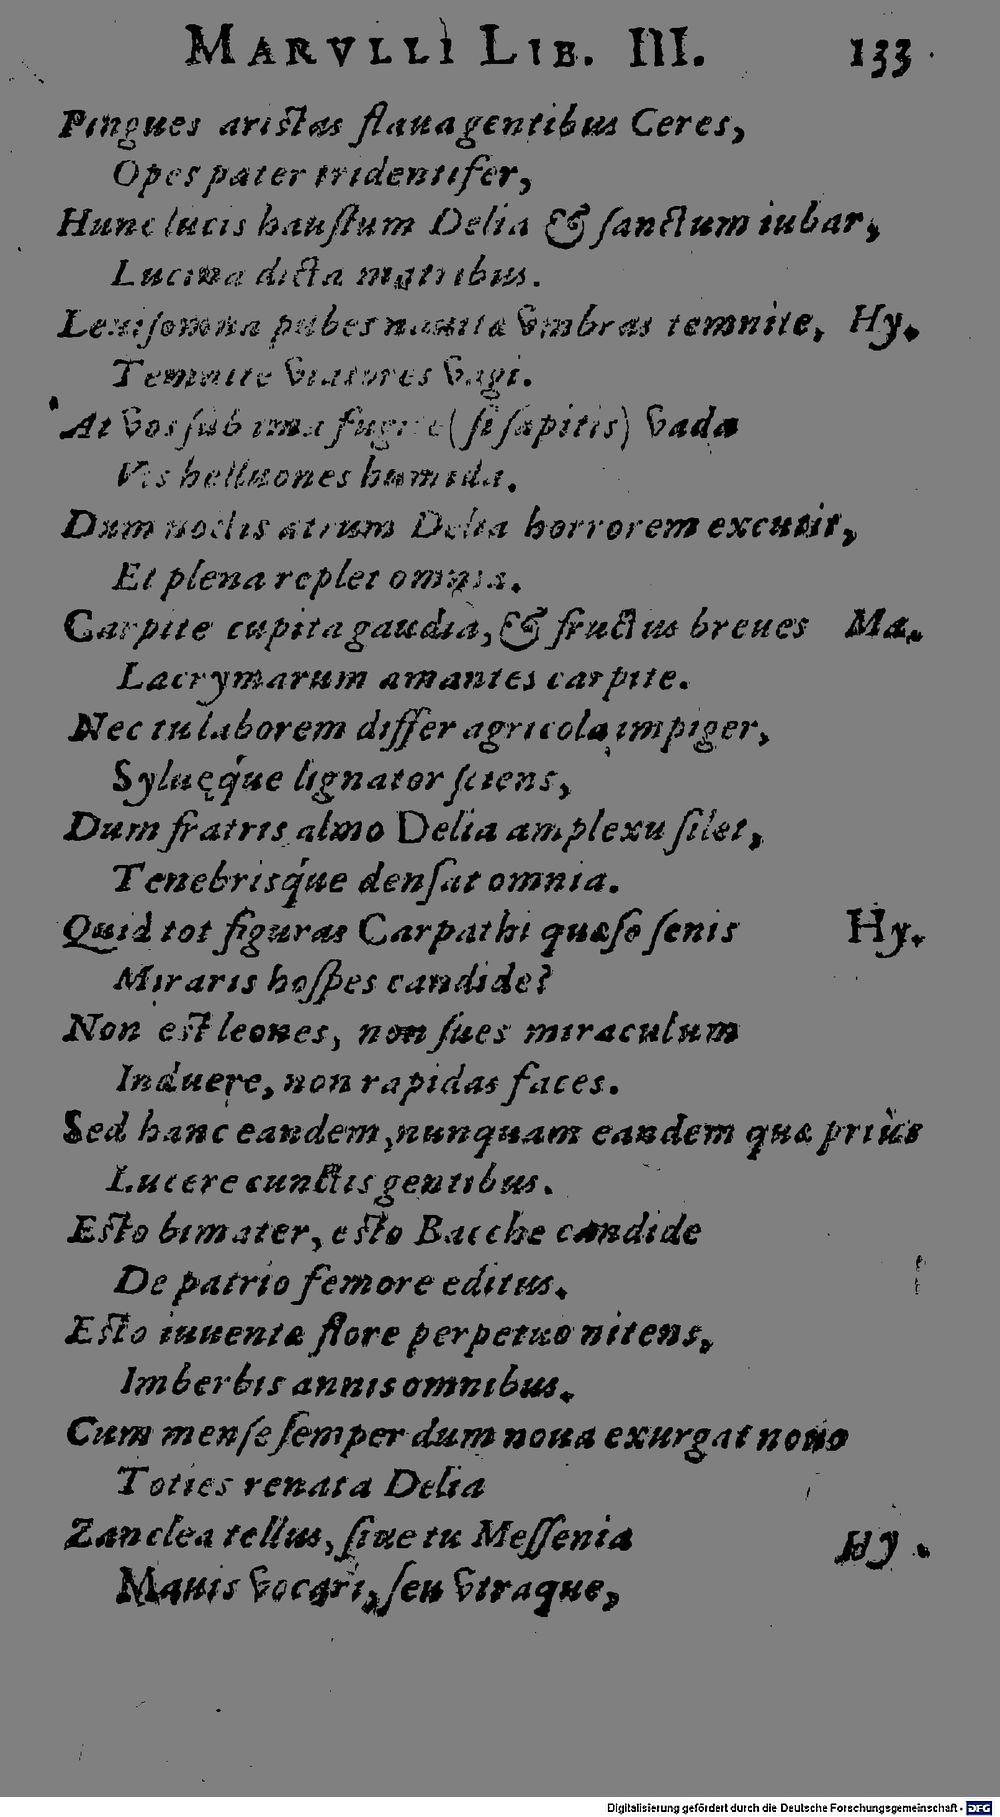 MARVLLI LIB. III. 133
Pingues aristas flaua gentibus Ceres,
Opes pater tridentifer,
Hunc lucis haustum Delia & sanctum iubar,
Lucina dicta matribus.
Leuisomna pubes nauita vmbras temnite, Hy.
Temnite viatores vagi.
At vos sub ima fugite (si sapitis) vada
Vis helluones humida.
Dum noctis atrum Delia horrorem excutit,
Et plena replet omnia.
Carpite cupita gaudia, & fructus breues Ma.
Lacrymarum amantes carpite.
Nec tu laborem differ agricola impiger,
Syluęq́ue lignator sciens,
Dum fratris almo Delia amplexu silet,
Tenebrisq́ue densat omnia.
Quid tot figuras Carpathi quæso senis Hy.
Miraris hospes candide?
Non est leones, non sues miraculum
Induere, non rapidas faces.
Sed hanc eandem, nunquam eandem quæ priùs
Lucere cunctis gentibus.
Esto bimater, esto Bacche candide
De patrio femore editus.
Esto iuuentæ flore perpetuo nitens,
Imberbis annis omnibus.
Cum mense semper dum noua exurgat nouo
Toties renata Delia
Zanclea tellus, siue tu Messenia Hy.
Mauis vocari, seu vtraque,
Digitalisierung gefördert durch die Deutsche Forschungsgemeinschaft - DFG